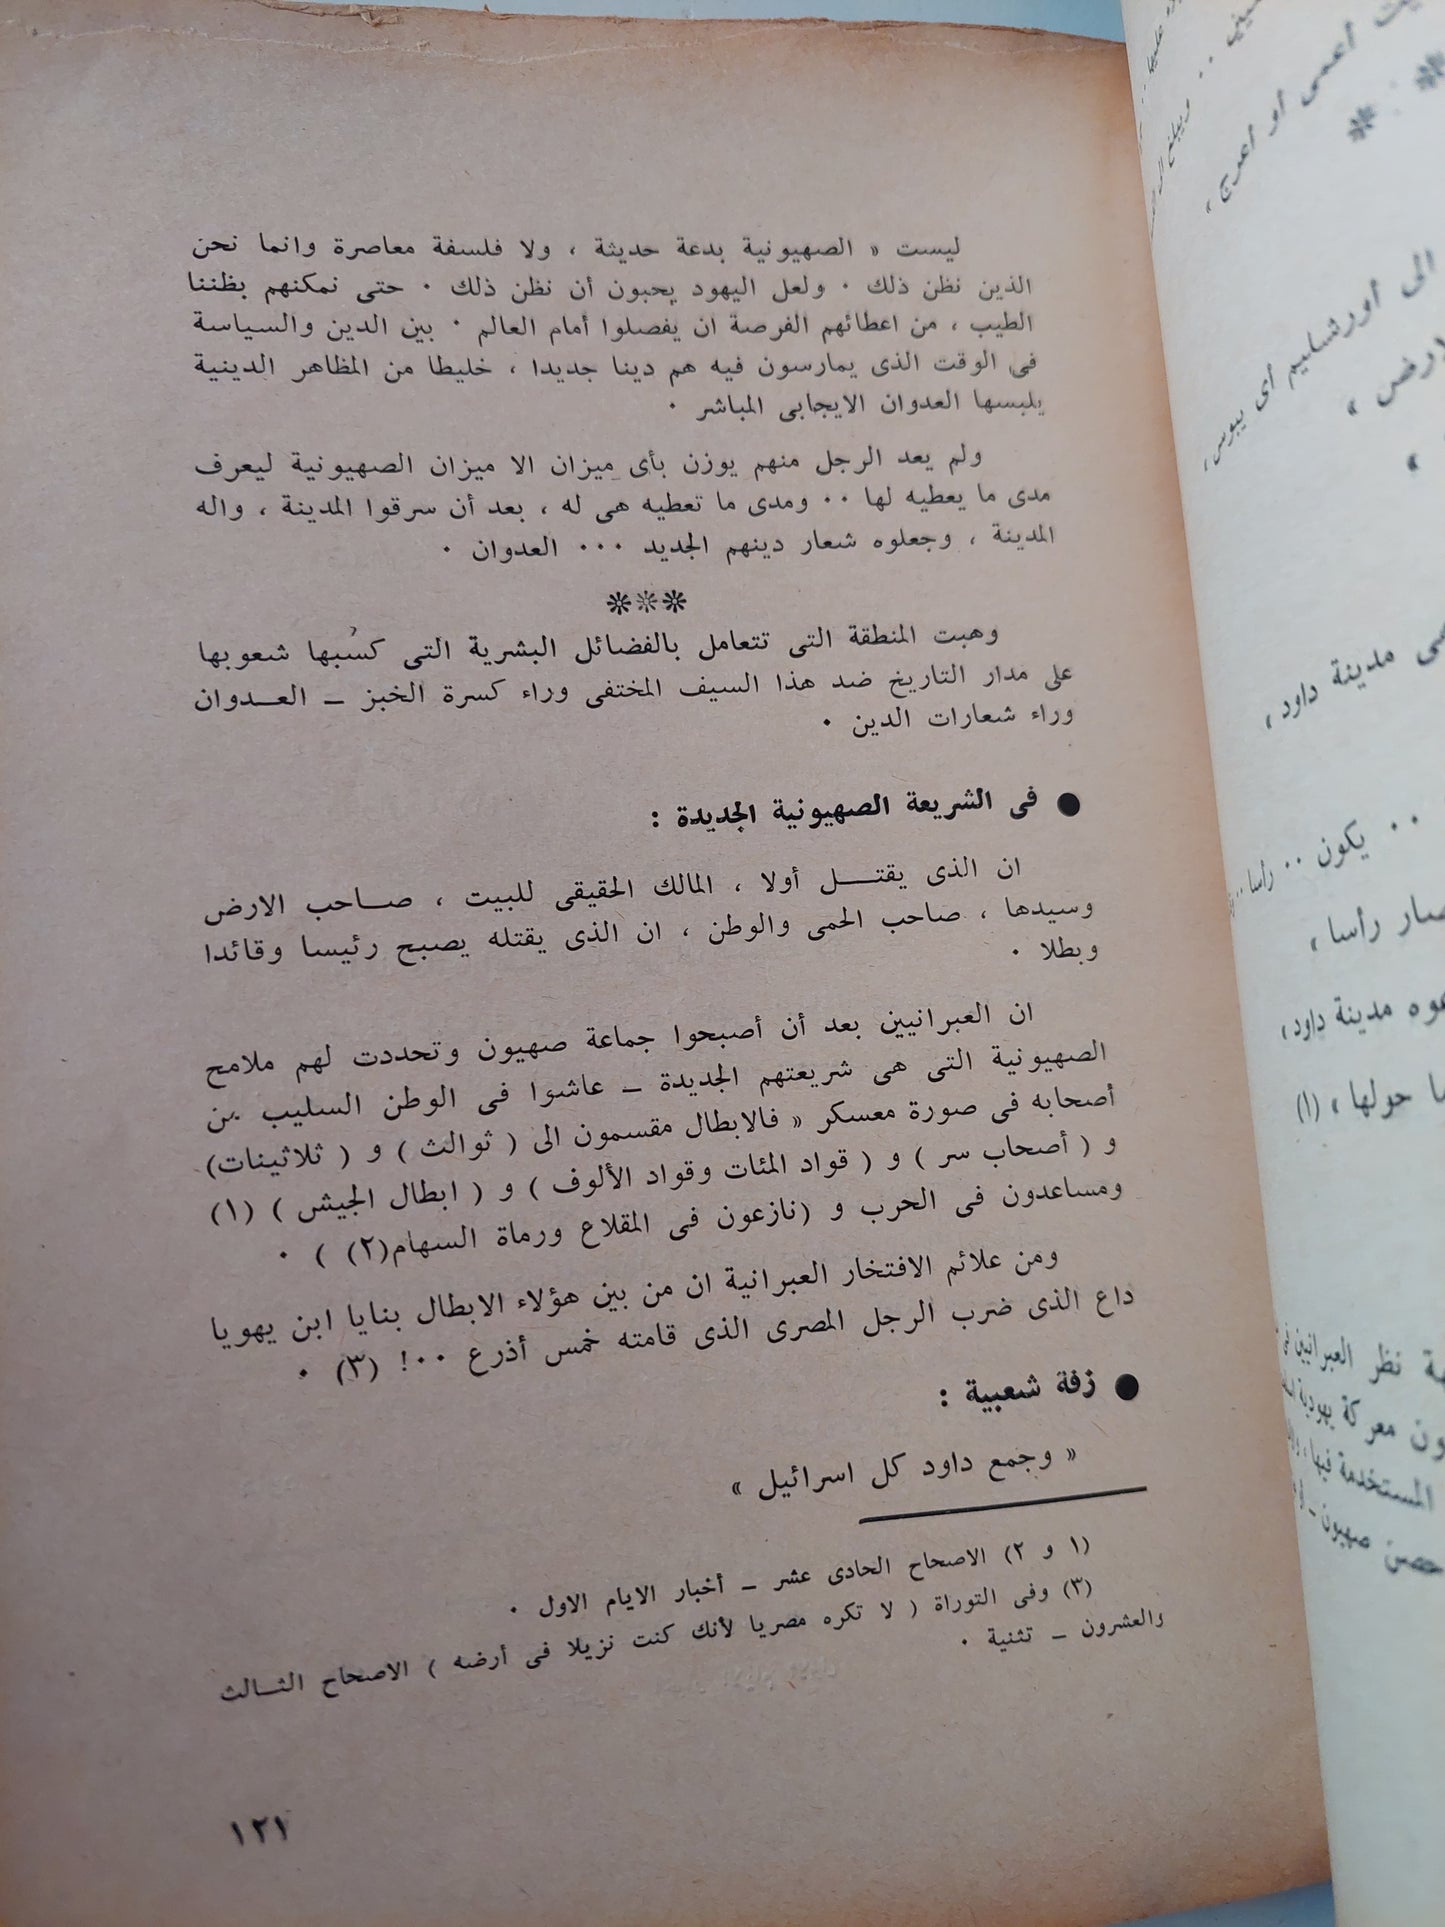 ليست « الصهيونية بدعة حديثة ، ولا فلسفة معاصرة وانما نحن
الذين نظن ذلك ٠ ولعل اليهود يحبون أن نظن ذلك ٠ حتى نمكنهم بظننا
الطيب ، من اعطائهم الفرصة ان يفصلوا أمام العالم ٠ بين الدين والسياسة
فى الوقت الذى يمارسون فيه هم دينا جديدا ، خليطا من المظاهر الدينية
يلبسها العدوان الايجابى المباشر ٠
ولم يعد الرجل منهم يوزن بأى ميزان الا ميزان الصهيونية ليعرف
مدى ما يعطيه لها ٠٠ ومدى ما تعطيه هى له ، بعد أن سرقوا المدينة ، واله
المدينة ، وجعلوه شعار دينهم الجديد ٠٠٠ العدوان ٠
***
وهبت المنطقة التى تتعامل بالفضائل البشرية التى كسبها شعوبها
على مدار التاريخ ضد هذا السيف المختفى وراء كسرة الخبز ــ العــدوان
وراء شعارات الدين ٠
● فى الشريعة الصهيونية الجديدة :
ان الذى يقتــــل أولا ، المالك الحقيقى للبيت ، صــاحب الارض
وسيدها ، صاحب الحمى والوطن ، ان الذى يقتله يصبح رئيسا وقائدا
وبطلا ٠
ان العبرانيين بعد أن أصبحوا جماعة صهيون وتحددت لهم ملامح
الصهيونية التى هى شريعتهم الجديدة ــ عاشوا فى الوطن السليب من
أصحابه فى صورة معسكر « فالابطال مقسمون الى ( ثوالث ) و ( ثلاثينات)
و ( أصحاب سر ) و ( قواد المئات وقواد الألوف ) و ( ابطال الجيش ) (١)
ومساعدون فى الحرب و (نازعون فى المقلاع ورماة السهام(٢) ) ٠
ومن علائم الافتخار العبرانية ان من بين هؤلاء الابطال بنايا ابن يهويا
داع الذى ضرب الرجل المصرى الذى قامته خمس أذرع ٠٠! (٣) ٠
● زفة شعبية :
« وجمع داود كل اسرائيل »
(١ و ٢) الاصحاح الحادى عشر ــ أخبار الايام الاول ٠
(٣) وفى التوراة ( لا تكره مصريا لأنك كنت نزيلا فى أرضه ) الاصحاح الثــالث
والعشرون ــ تثنية ٠
١٢١
أعمى أو أعرج ،
* *
الى أورشليم أى يبوس ،
مدينة داود ،
٠٠ يكون ٠٠ رأسا
رأسا ،
مدينة داود،
حولها ، (١)
نظر العبرانيين
معركة يهودية
المستخدمة فيها
حصن صهيون